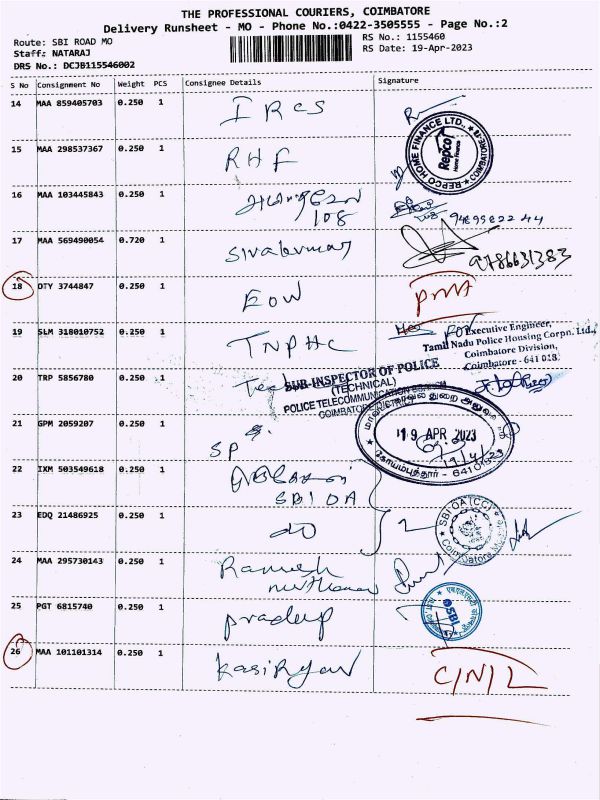 THE PROFESSIONAL COURIERS, COIMBATORE
Delivery Runsheet - MO - Phone No.:0422-3505555 - Page No.:2
Route: SBI ROAD MO
RS No.: 1155460
Staff: NATARAJ
RS Date: 19-Apr-2023
DRS No.: DCJB115546002
S No Consignment No Weight PCS Consignee Details Signature
14 MAA 859405703 0.250 1 IRCS
REPCO HOME FINANCE LTD., COIMBATORE
Repco
Home Finance
15 MAA 298537367 0.250 1 RHF
16 MAA 103445843 0.250 1
108
17 MAA 569490054 0.720 1 Sivakumar 9786631383
18 DTY 3744847 0.250 1 EOW PMA
19 SLM 318010752 0.250 1 TNPHC
FOR Executive Engineer,
Tamil Nadu Police Housing Corpn. Ltd.,
Coimbatore Division,
Coimbatore - 641 018.
20 TRP 5856780 0.250 1
SUB-INSPECTOR OF POLICE
(TECHNICAL)
POLICE TELECOMMUNICATION
COIMBATORE DISTRICT
21 GPM 2059207 0.250 1 SP
19 APR 2023
19/4/23
22 IXM 503549618 0.250 1
SBI OA
23 EDQ 21486925 0.250 1 do
SBI OA (CC)
Coimbatore
24 MAA 295730143 0.250 1 Ramesh
25 PGT 6815740 0.250 1 Pradeep
SBI
26 MAA 101101314 0.250 1 C/N/L